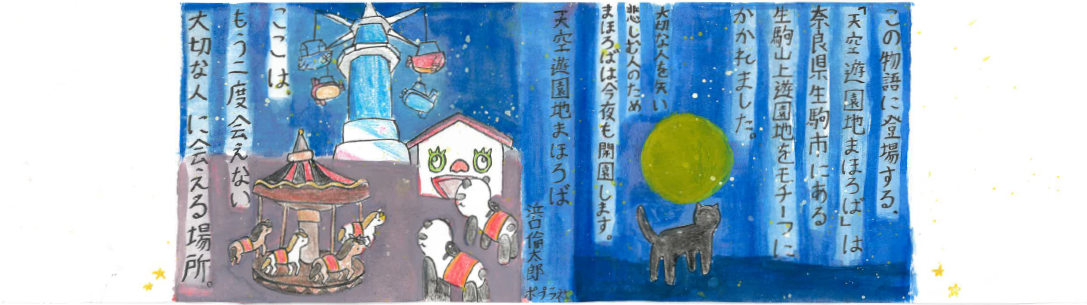 この物語に登場する、
「天空遊園地まほろば」は
奈良県生駒市にある
生駒山上遊園地をモチーフに
かかれました。
大切な人を失い
悲しむ人のため
まほろばは今夜も開園します。
天空遊園地まほろば
浜口倫太郎
ポプラ社
ここは、
もう二度会えない
大切な人に会える場所。